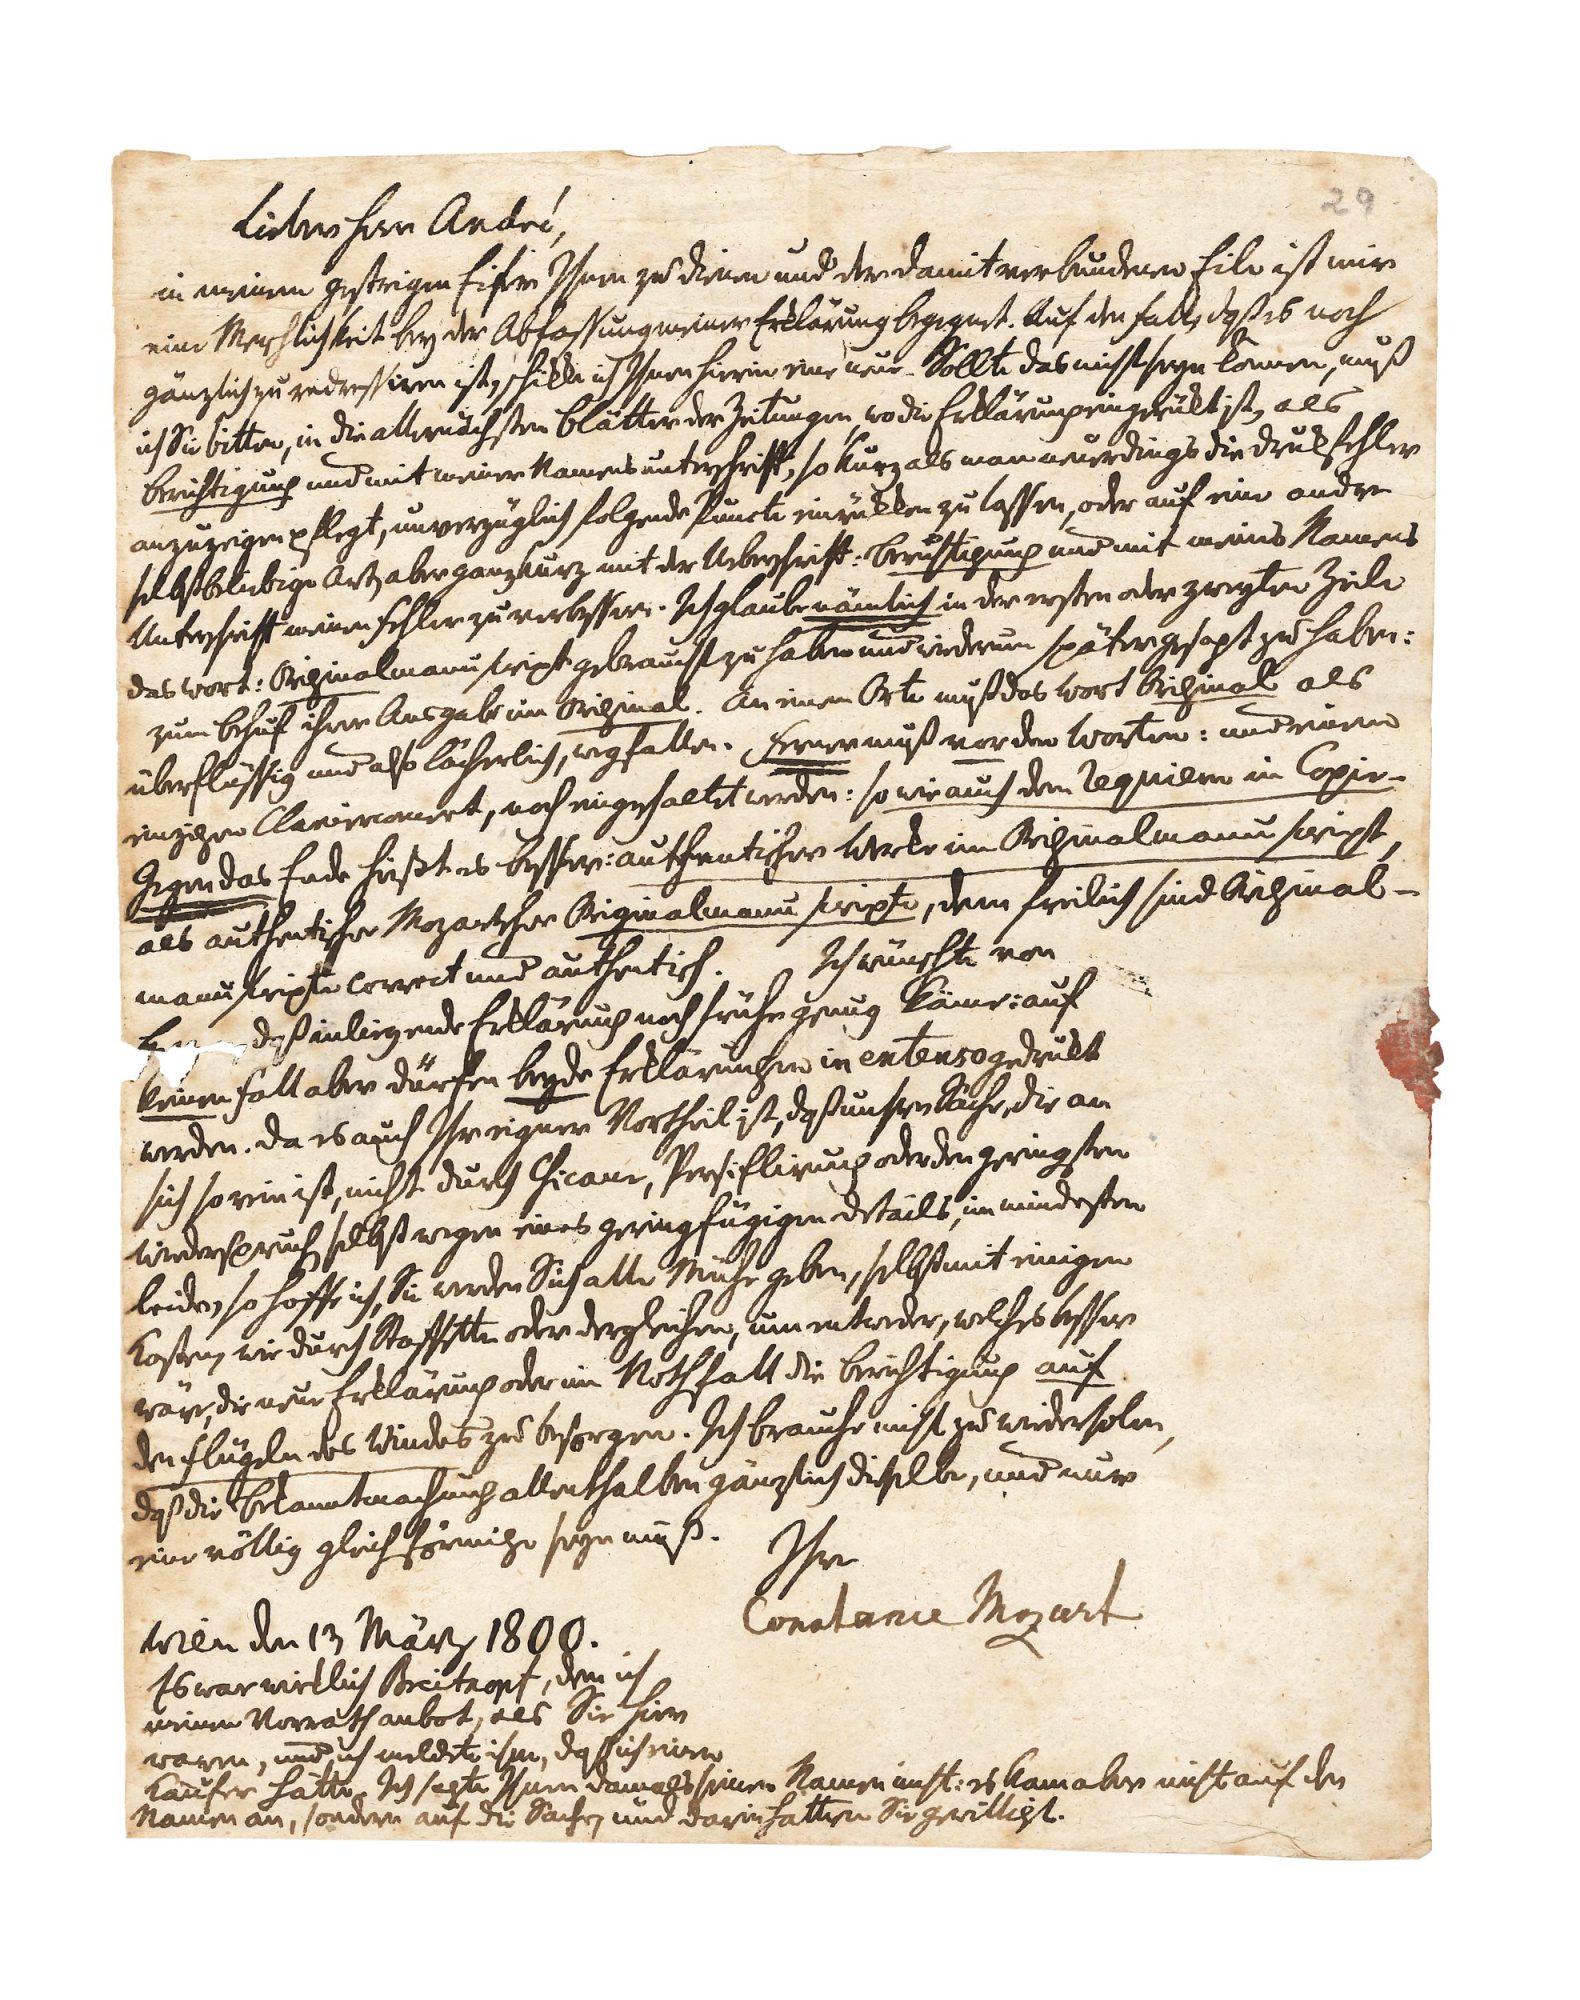 29
Lieber Herr André,
in meinem gestrigen Eifer Ihnen zu dienen und der damit verbundenen Eile ist mir
eine Menschlichkeit bey der Abfassung meiner Erklärung begegnet. Auf den Fall, daß es noch
gänzlich zu redressiren ist, schikke ich Ihnen hierin eine neue. Sollte das nicht seyn können, muß
ich Sie bitten, in die allernächsten Blätter der Zeitungen, wo die Erklärung eingerükt ist, als
Berichtigung und mit meiner Namensunterschrift, so kurz als man neuerdings die Drukfehler
anzuzeigen pflegt, unverzüglich folgende Puncte einrükken zu lassen, oder auf eine andre
selbstbeliebige Art, aber ganz kurz mit der Ueberschrift: Berichtigung und mit meines Namens
Unterschrift meinen Fehler zu verbessern. Ich glaube nämlich in der ersten oder zweyten Zeile
das Wort: Originalmanuscript gebraucht zu haben und wiederum später gesagt zu haben:
zum Behuf ihrer Ausgabe im Original. An einem Orte muß das Wort Original als
überflüssig und also lächerlich, wegfallen. Ferner muß vor den Worten: und einem
einzigen Clavierconcert, noch eingeschaltet werden: so wie auch dem Requiem in Copie.
Gegen das Ende heißt es besser: authentischer Werke im Originalmanuscript,
als authentischer Mozartscher Originalmanuscripte, denn freilich sind Original-
manuscripte correct und authentisch. Ich wünschte von
daß inliegende Erklärung noch frühe genug käme: auf
keinen Fall aber dürfen beyde Erklärungen in extenso gedrukt
werden. Da es auch Ihr eigner Vortheil ist, daß unsere Sache, die an
sich so rein ist, nicht durch Chicane, Persiflirung oder den geringsten
Wiederspruch, selbst wegen eines geringfügigen details, im mindesten
leide, so hoffe ich, Sie werden Sich alle Mühe geben, selbst mit einigen
Kosten, wie durch Staffette oder dergleichen, um entweder, welches besser
wäre, die neue Erklärung oder im Nothfall die Berichtigung auf
den Flügeln des Windes zu besorgen. Ich brauche nicht zu wiederholen,
daß die Bekanntmachung allenthalben gänzlich dieselbe, und nur
eine völlig gleichförmige seyn muß.
Ihre
Constance Mozart
Wien den 13 März 1800.
Es war wirklich Breitkopf, dem ich
meinen Vorrath anbot, als Sie hier
waren, und ich meldete ihm, daß ich einen
Käufer hätte. Ich sagte Ihnen damals seinen Namen nicht: es kam aber nicht auf den
Namen an, sondern auf die Sache, und darin hatten Sie gewilligt.